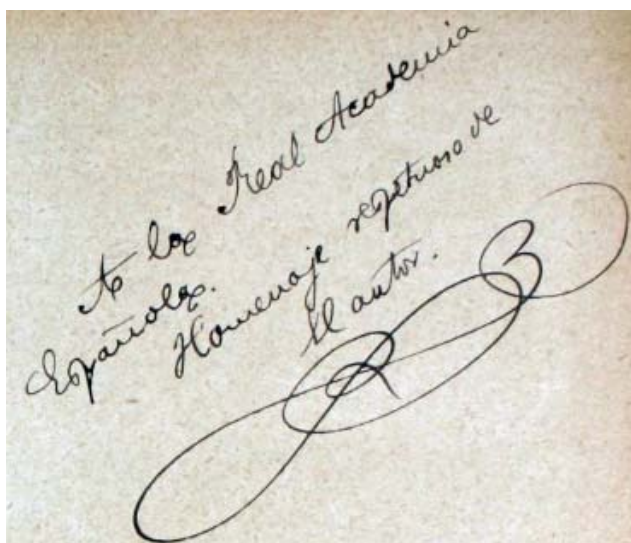 A la Real Academia
Española.
Homenaje respetuoso de
El autor.